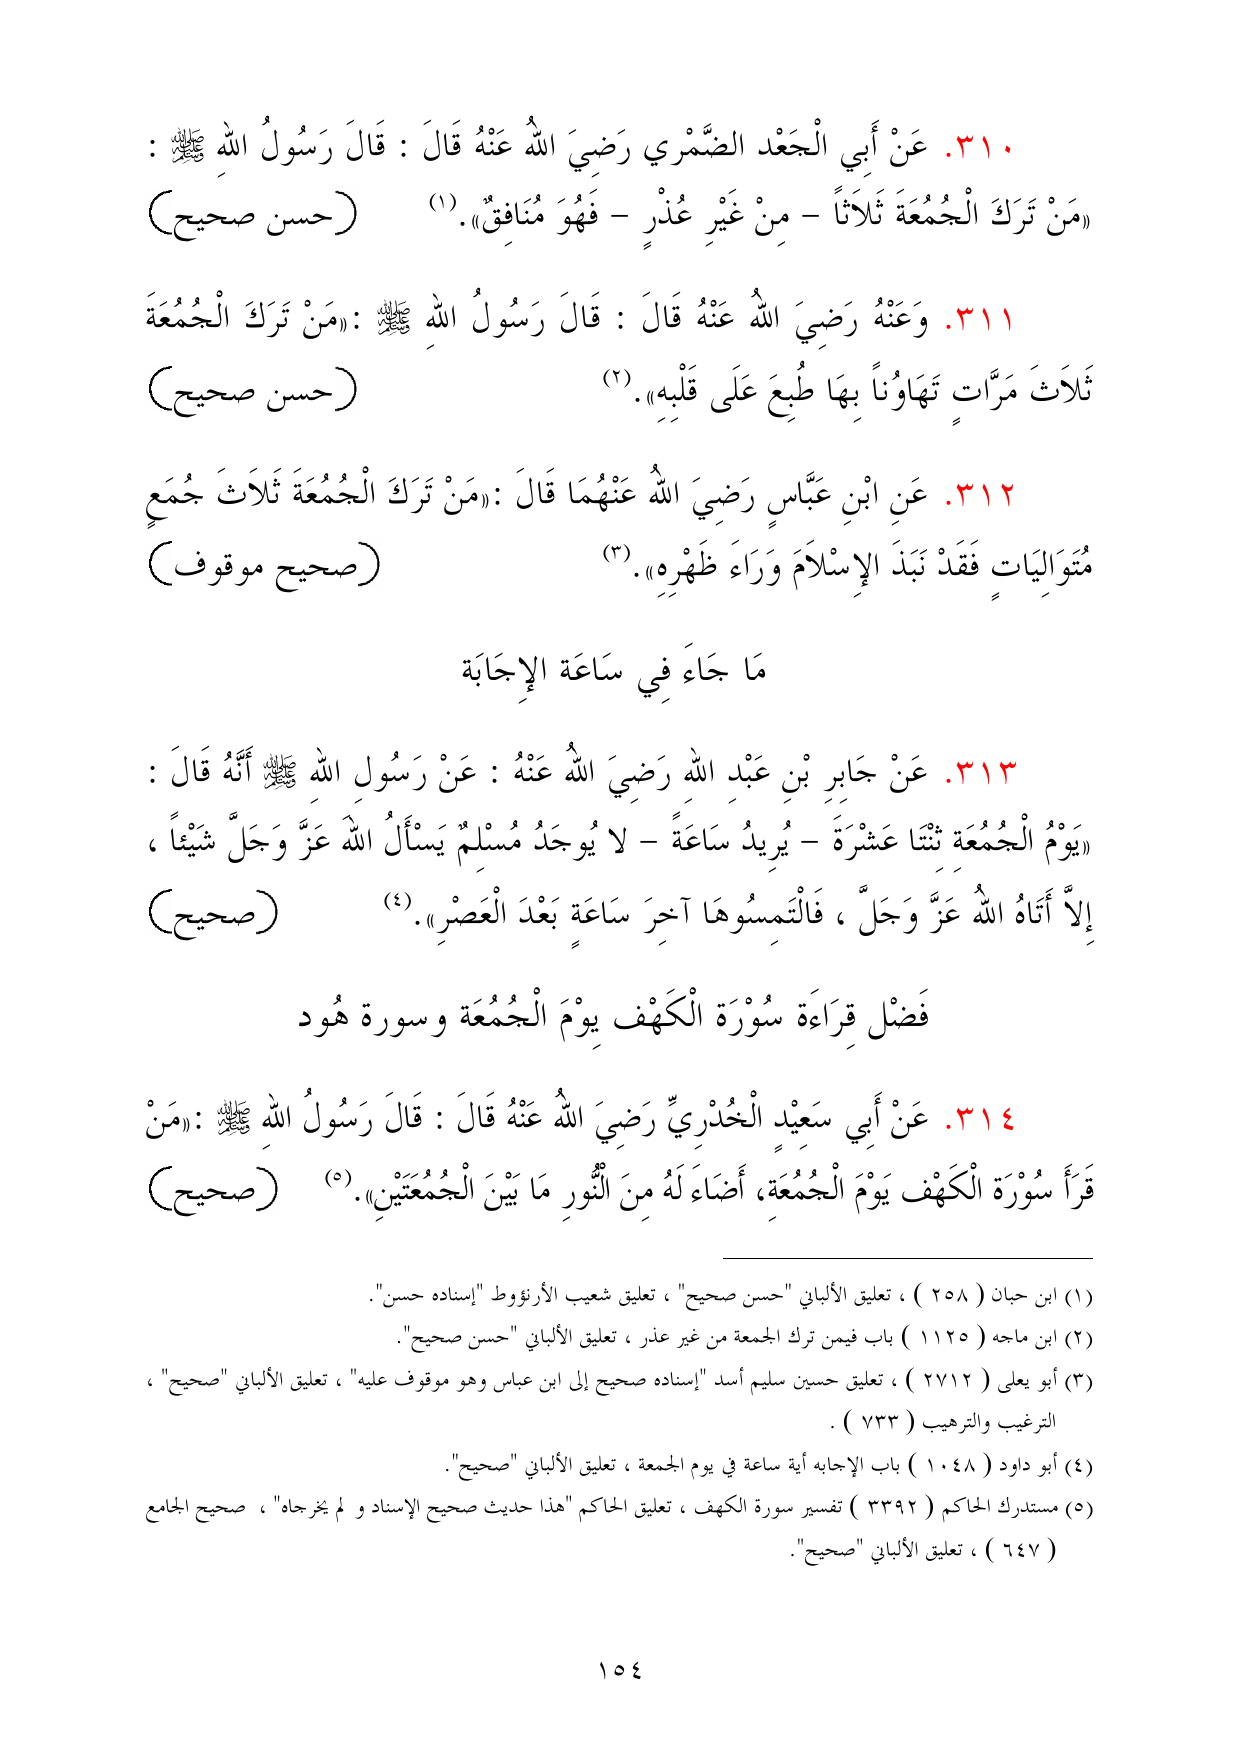 ٣١٠. عَنْ أَبِي الْجَعْد الضَّمْري رَضِيَ اللهُ عَنْهُ قَالَ : قَالَ رَسُولُ اللهِ ﷺ :
«مَنْ تَرَكَ الْجُمُعَةَ ثَلَاثاً – مِنْ غَيْرِ عُذْرٍ – فَهُوَ مُنَافِقٌ».(١) (حسن صحيح)
٣١١. وَعَنْهُ رَضِيَ اللهُ عَنْهُ قَالَ : قَالَ رَسُولُ اللهِ ﷺ :«مَنْ تَرَكَ الْجُمُعَةَ
ثَلاَثَ مَرَّاتٍ تَهَاوُناً بِهَا طُبِعَ عَلَى قَلْبِهِ».(٢) (حسن صحيح)
٣١٢. عَنِ ابْنِ عَبَّاسٍ رَضِيَ اللهُ عَنْهُمَا قَالَ :«مَنْ تَرَكَ الْجُمُعَةَ ثَلاَثَ جُمَعٍ
مُتَوَالِيَاتٍ فَقَدْ نَبَذَ الإِسْلاَمَ وَرَاءَ ظَهْرِهِ».(٣) (صحيح موقوف)
مَا جَاءَ فِي سَاعَة الإِجَابَة
٣١٣. عَنْ جَابِرِ بْنِ عَبْدِ اللهِ رَضِيَ اللهُ عَنْهُ : عَنْ رَسُولِ اللهِ ﷺ أَنَّهُ قَالَ :
«يَوْمُ الْجُمُعَةِ ثِنْتَا عَشْرَةَ – يُرِيدُ سَاعَةً – لا يُوجَدُ مُسْلِمٌ يَسْأَلُ اللهَ عَزَّ وَجَلَّ شَيْئاً ،
إِلاَّ أَتَاهُ اللهُ عَزَّ وَجَلَّ ، فَالْتَمِسُوهَا آخِرَ سَاعَةٍ بَعْدَ الْعَصْرِ».(٤) (صحيح)
فَضْل قِرَاءَة سُوْرَة الْكَهْف يِوْمَ الْجُمُعَة وسورة هُود
٣١٤. عَنْ أَبِي سَعِيْدٍ الْخُدْرِيِّ رَضِيَ اللهُ عَنْهُ قَالَ : قَالَ رَسُولُ اللهِ ﷺ :«مَنْ
قَرَأَ سُوْرَة الْكَهْف يَوْمَ الْجُمُعَةِ، أَضَاءَ لَهُ مِنَ النُّورِ مَا بَيْنَ الْجُمُعَتَيْنِ».(٥) (صحيح)
(١) ابن حبان ( ٢٥٨ ) ، تعليق الألباني "حسن صحيح" ، تعليق شعيب الأرنؤوط "إسناده حسن".
(٢) ابن ماجه ( ١١٢٥ ) باب فيمن ترك الجمعة من غير عذر ، تعليق الألباني "حسن صحيح".
(٣) أبو يعلى ( ٢٧١٢ ) ، تعليق حسين سليم أسد "إسناده صحيح إلى ابن عباس وهو موقوف عليه" ، تعليق الألباني "صحيح" ،
الترغيب والترهيب ( ٧٣٣ ) .
(٤) أبو داود ( ١٠٤٨ ) باب الإجابه أية ساعة في يوم الجمعة ، تعليق الألباني "صحيح".
(٥) مستدرك الحاكم ( ٣٣٩٢ ) تفسير سورة الكهف ، تعليق الحاكم "هذا حديث صحيح الإسناد و لم يخرجاه" ، صحيح الجامع
( ٦٤٧ ) ، تعليق الألباني "صحيح".
١٥٤